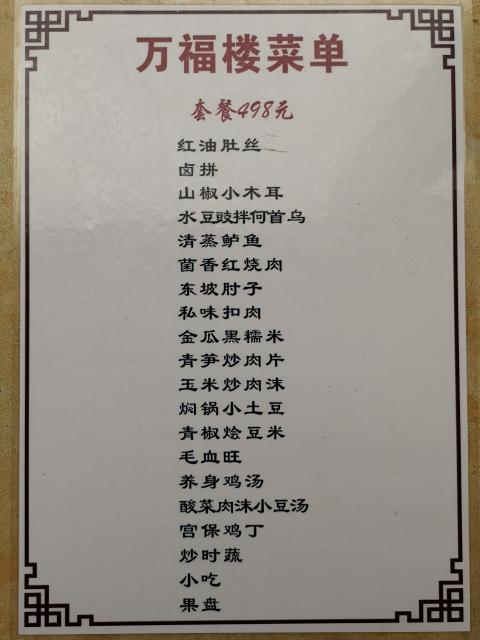 万福楼菜单
套餐498元
红油肚丝
卤拼
山椒小木耳
水豆豉拌何首乌
清蒸鲈鱼
菌香红烧肉
东坡肘子
私味扣肉
金瓜黑糯米
青笋炒肉片
玉米炒肉沫
焖锅小土豆
青椒烩豆米
毛血旺
养身鸡汤
酸菜肉沫小豆汤
宫保鸡丁
炒时蔬
小吃
果盘